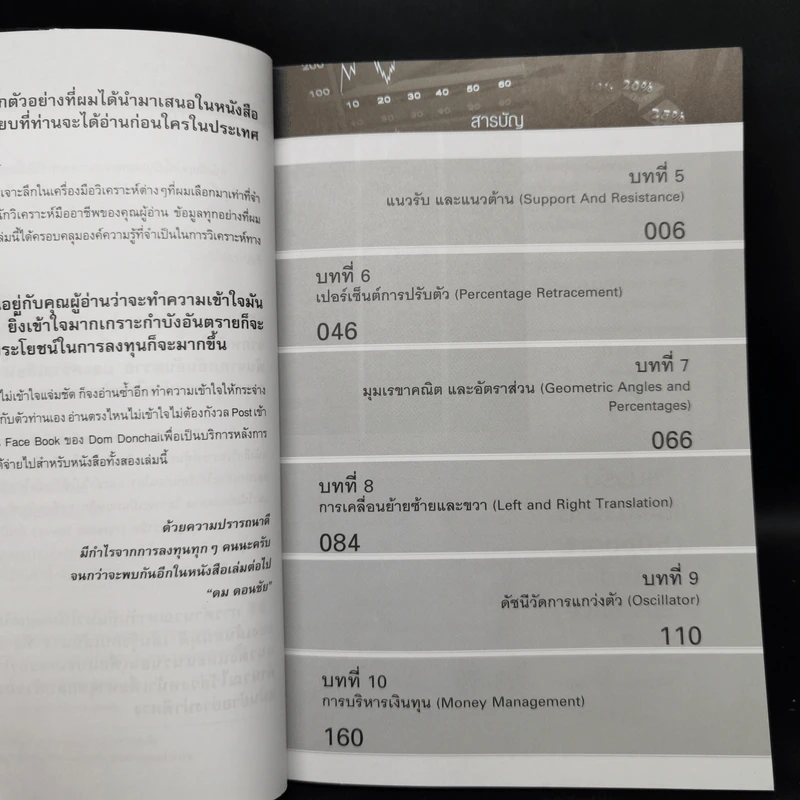 กตัวอย่างที่ผมได้นำมาเสนอในหนังสือ
ยบที่ท่านจะได้อ่านก่อนใครในประเทศ
เจาะลึกในเครื่องมือวิเคราะห์ต่างๆที่ผมเลือกมาเท่าที่จำ
นักวิเคราะห์มืออาชีพของคุณผู้อ่าน ข้อมูลทุกอย่างที่ผม
ล่มนี้ได้ครอบคลุมองค์ความรู้ที่จำเป็นในการวิเคราะห์ทาง
นอยู่กับคุณผู้อ่านว่าจะทำความเข้าใจมัน
ยิ่งเข้าใจมากเกราะกำบังอันตรายก็จะ
ระโยชน์ในการลงทุนก็จะมากขึ้น
ไม่เข้าใจแจ่มชัด ก็จงอ่านซ้ำอีก ทำความเข้าใจให้กระจ่าง
กับตัวท่านเอง อ่านตรงไหนไม่เข้าใจไม่ต้องกังวล Post เข้า
Face Book ของ Dom Donchaiเพื่อเป็นบริการหลังการ
ด้จ่ายไปสำหรับหนังสือทั้งสองเล่มนี้
ด้วยความปรารถนาดี
มีกำไรจากการลงทุนทุก ๆ คนนะครับ
จนกว่าจะพบกันอีกในหนังสือเล่มต่อไป
"ดม ดอนชัย"
200
100 10 20 30 40 50 60 60
20%
25%
สารบัญ
บทที่ 5
แนวรับ และแนวต้าน (Support And Resistance)
006
บทที่ 6
เปอร์เซ็นต์การปรับตัว (Percentage Retracement)
046
บทที่ 7
มุมเรขาคณิต และอัตราส่วน (Geometric Angles and
Percentages)
066
บทที่ 8
การเคลื่อนย้ายซ้ายและขวา (Left and Right Translation)
084
บทที่ 9
ดัชนีวัดการแกว่งตัว (Oscillator)
110
บทที่ 10
การบริหารเงินทุน (Money Management)
160